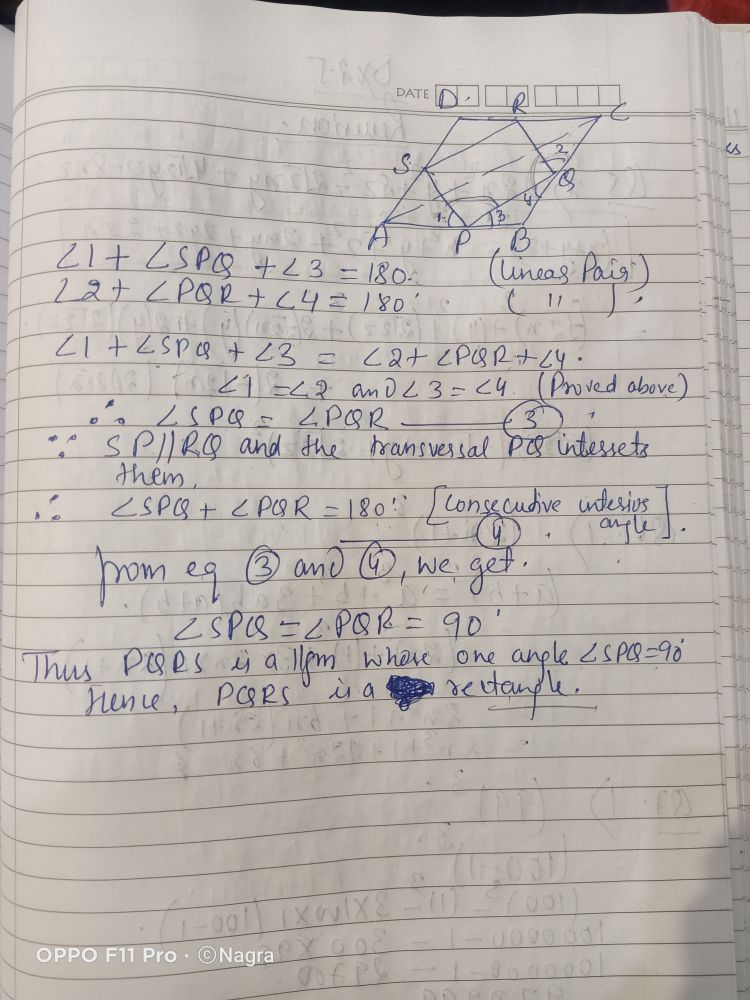 DATE
D. R C
S Q
2
4
1 3
A P B
∠1 + ∠SPQ + ∠3 = 180° (Linear Pair)
∠2 + ∠PQR + ∠4 = 180° ( 11 )
∠1 + ∠SPQ + ∠3 = ∠2 + ∠PQR + ∠4.
∠1 = ∠2 and ∠3 = ∠4 (Proved above)
∴ ∠SPQ = ∠PQR ——— ③
∵ SP||RQ and the transversal PQ intessets
them,
∴ ∠SPQ + ∠PQR = 180° [Consecutive interior
angle].
——— ④
from eq ③ and ④, we get.
∠SPQ = ∠PQR = 90°
Thus PQRS is a ||gm whose one angle ∠SPQ = 90°
Hence, PQRS is a rectangle.
OPPO F11 Pro · ©Nagra